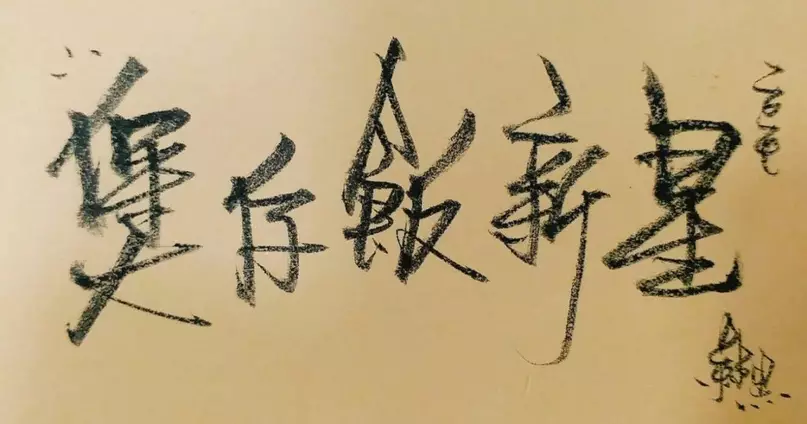 煲仔飯新星